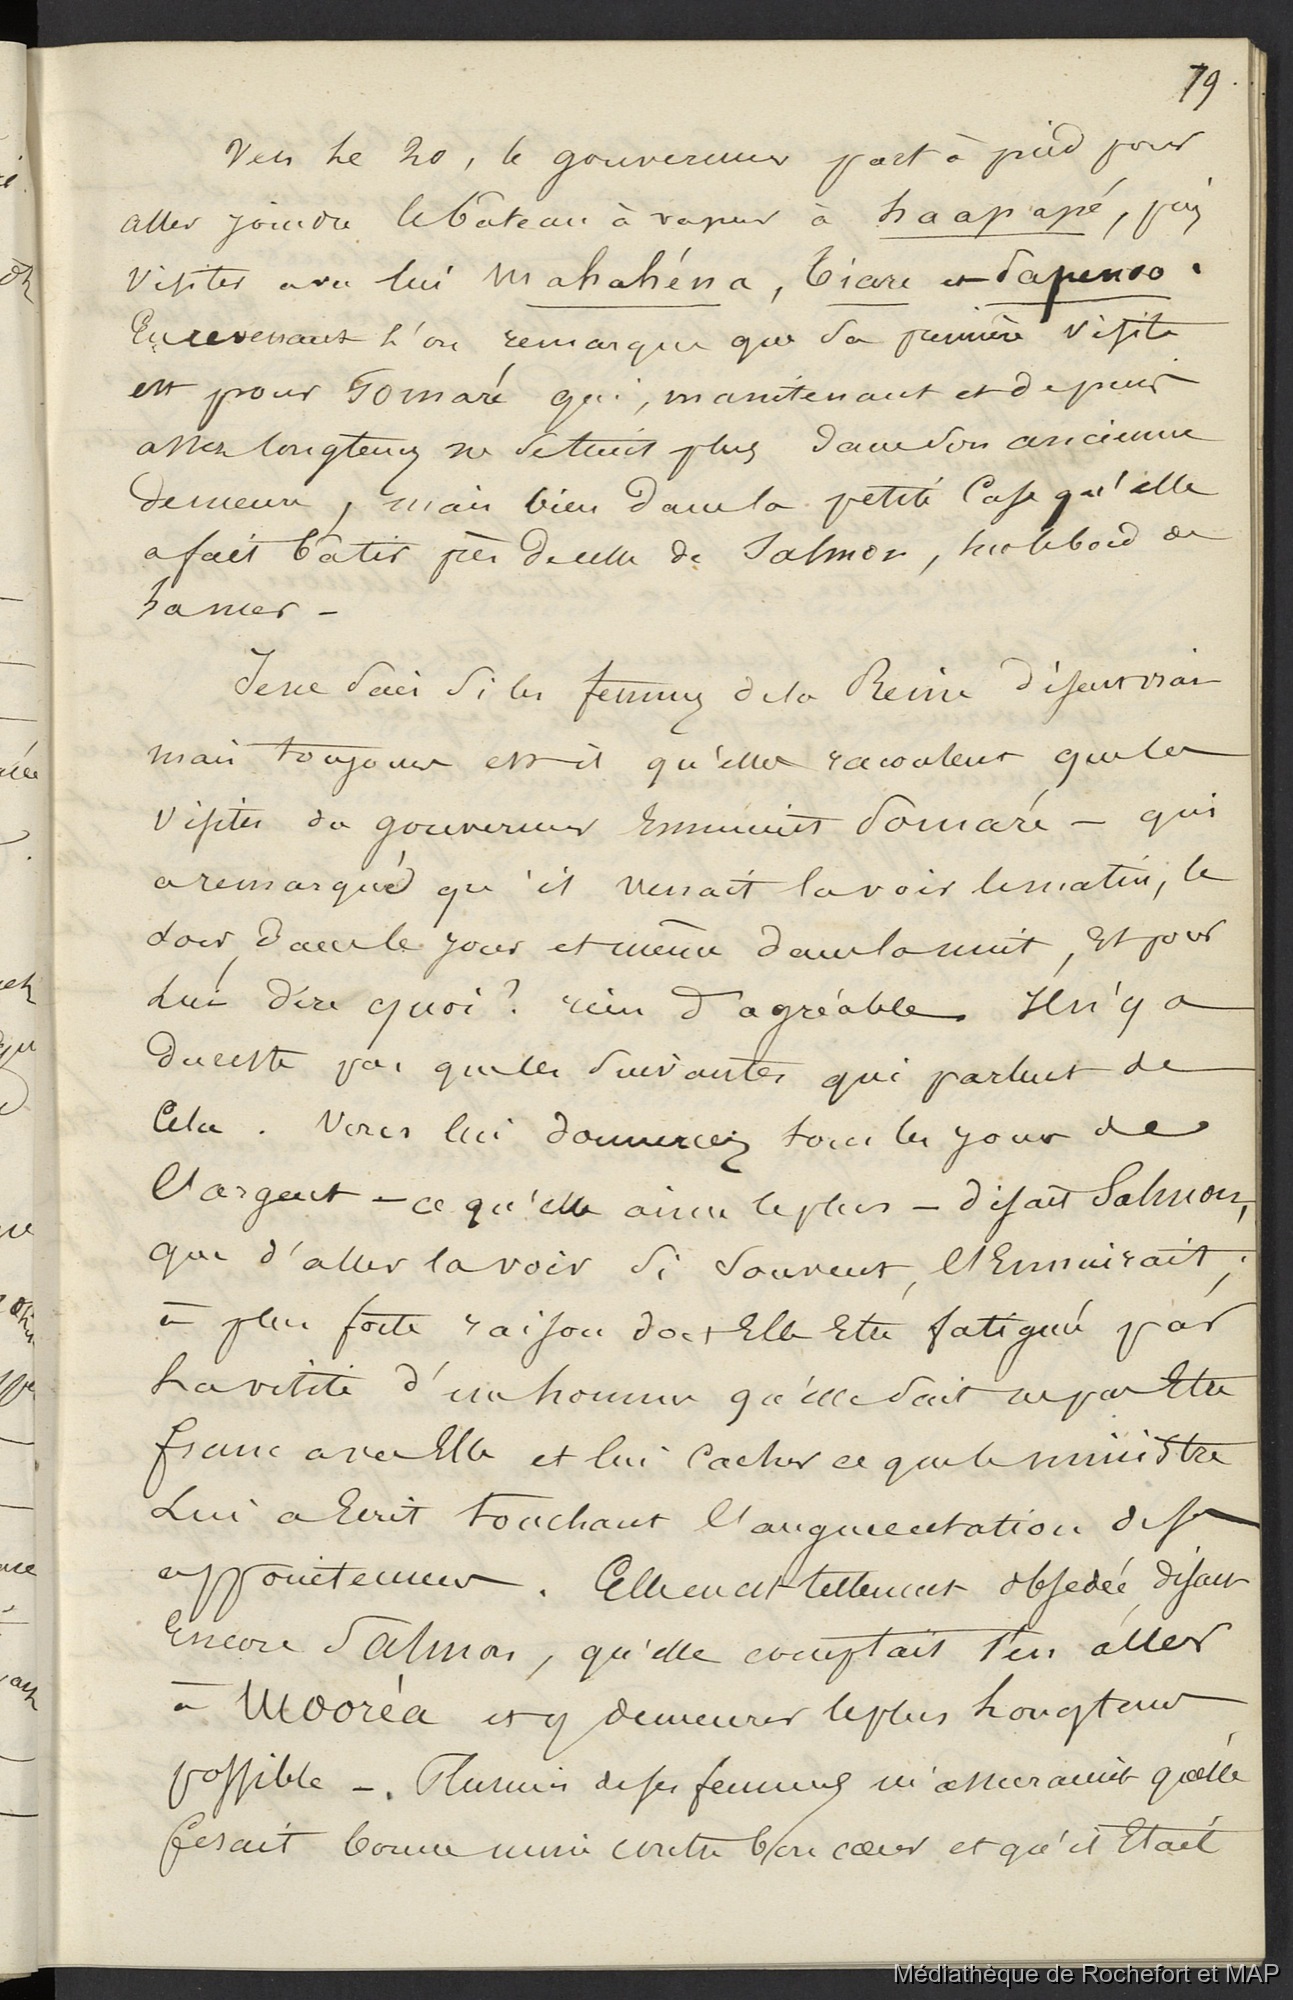 79.
Vers le 20, le gouverneur part à pied pour
aller joindre le bateau à vapeur à haapapé, puis
visiter avec lui Mahahéna, Tiare et Papenoo.
En revenant l'on remarque que sa première visite
est pour Pomaré qui, maintenant et depuis
assez longtems ne se tient plus dans son ancienne
demeure, mais bien dans la petite case qu'elle
a fait bâtir près de celle de Salmon, sur le bord de
la mer —
Je ne sais si les femmes de la Reine disent vrai
mais toujours est-il qu'elles racontent que les
visites du gouverneur ennuient Pomaré — qui
a remarqué qu'il venait la voir le matin, le
soir, dans le jour et même dans la nuit, et pour
lui dire quoi? rien d'agréable. Il n'y a
du reste pas que les suivantes qui parlent de
cela. Vous lui donneriez tous les jours de
l'argent — ce qu'elle aime le plus — disait Salmon,
que d'aller la voir si souvent, l'ennuirait;
à plus forte raison doit elle être fatiguée par
la visite d'un homme qu'elle sait ne pas être
franc avec elle et lui cacher ce que le ministre
lui a écrit touchant l'augmentation de ses
appointemens. Elle en est tellement obsédée, disait
encore Salmon, qu'elle comptait s'en aller
à Mooréa et y demeurer le plus longtems
possible —. Plusieurs de ses femmes m'assuraient qu'elle
fesait bonne mine contre bon cœur et qu'il était
Médiathèque de Rochefort et MAP